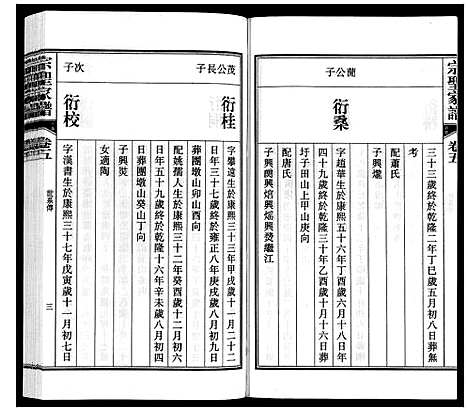 宗聖家譜 卷五
三十三歲終於乾隆二年丁巳五月初八日葬無
考
配蕭氏
子興爖
蘭公子
衍桑
字趙華生於康熙五十六年丁酉歲六月十八日年
四十九歲終於乾隆三十年乙酉歲十月十六日葬
圩子田山上甲山庚向
配唐氏
子興 興焴興熎興燹繼江
茂公長子
衍桂
字攀遠生於康熙三十三年甲戌歲十一月二十二
日年三十七歲終於雍正八年庚戌歲八月初九日
葬團墩山卯山酉向
配姚孺人生於康熙三十二年癸酉歲十二月初六
日年五十九歲終於乾隆十六年辛未歲八月初四
日葬團墩山癸山丁向
子興炗
女適陶
次子
衍校
字漢書生於康熙三十七年戊寅歲十一月初七日
宗聖家譜 卷五 世系傳 三